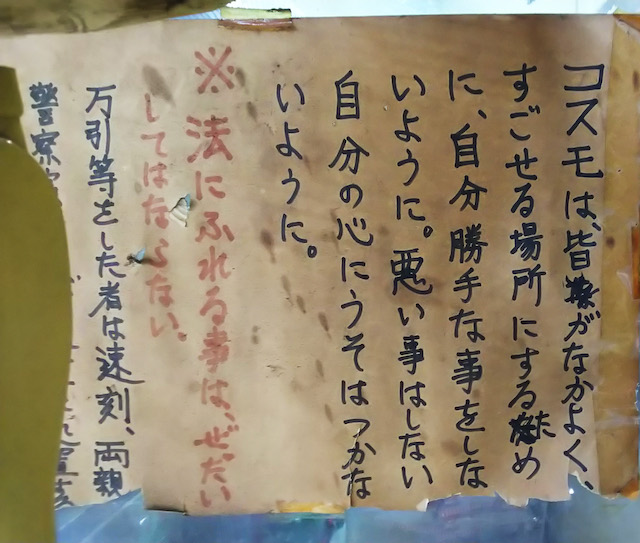 コスモは、皆がなかよく、
すごせる場所にするため
に、自分勝手な事をしな
いように。悪い事はしない
自分の心にうそはつかな
いように。
※法にふれる事は、ぜたい
してはならない。
万引等をした者は速刻、両親
警察